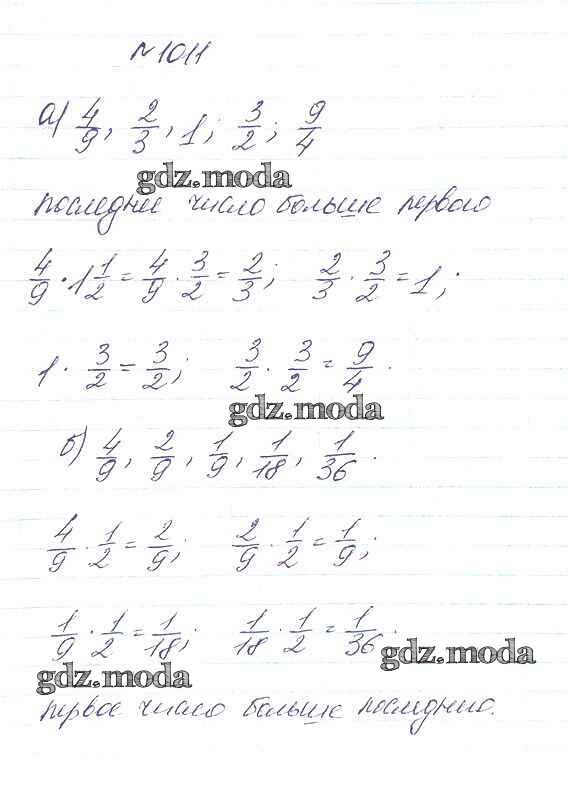 №1011
а) 4/9, 2/3, 1; 3/2; 9/4
gdz.moda
последнее число больше первого
4/9 · 1 1/2 = 4/9 · 3/2 = 2/3; 2/3 · 3/2 = 1;
1 · 3/2 = 3/2; 3/2 · 3/2 = 9/4.
gdz.moda
б) 4/9, 2/9, 1/9, 1/18, 1/36.
4/9 · 1/2 = 2/9; 2/9 · 1/2 = 1/9;
1/9 · 1/2 = 1/18; 1/18 · 1/2 = 1/36.
gdz.moda
gdz.moda
первое число больше последнего.